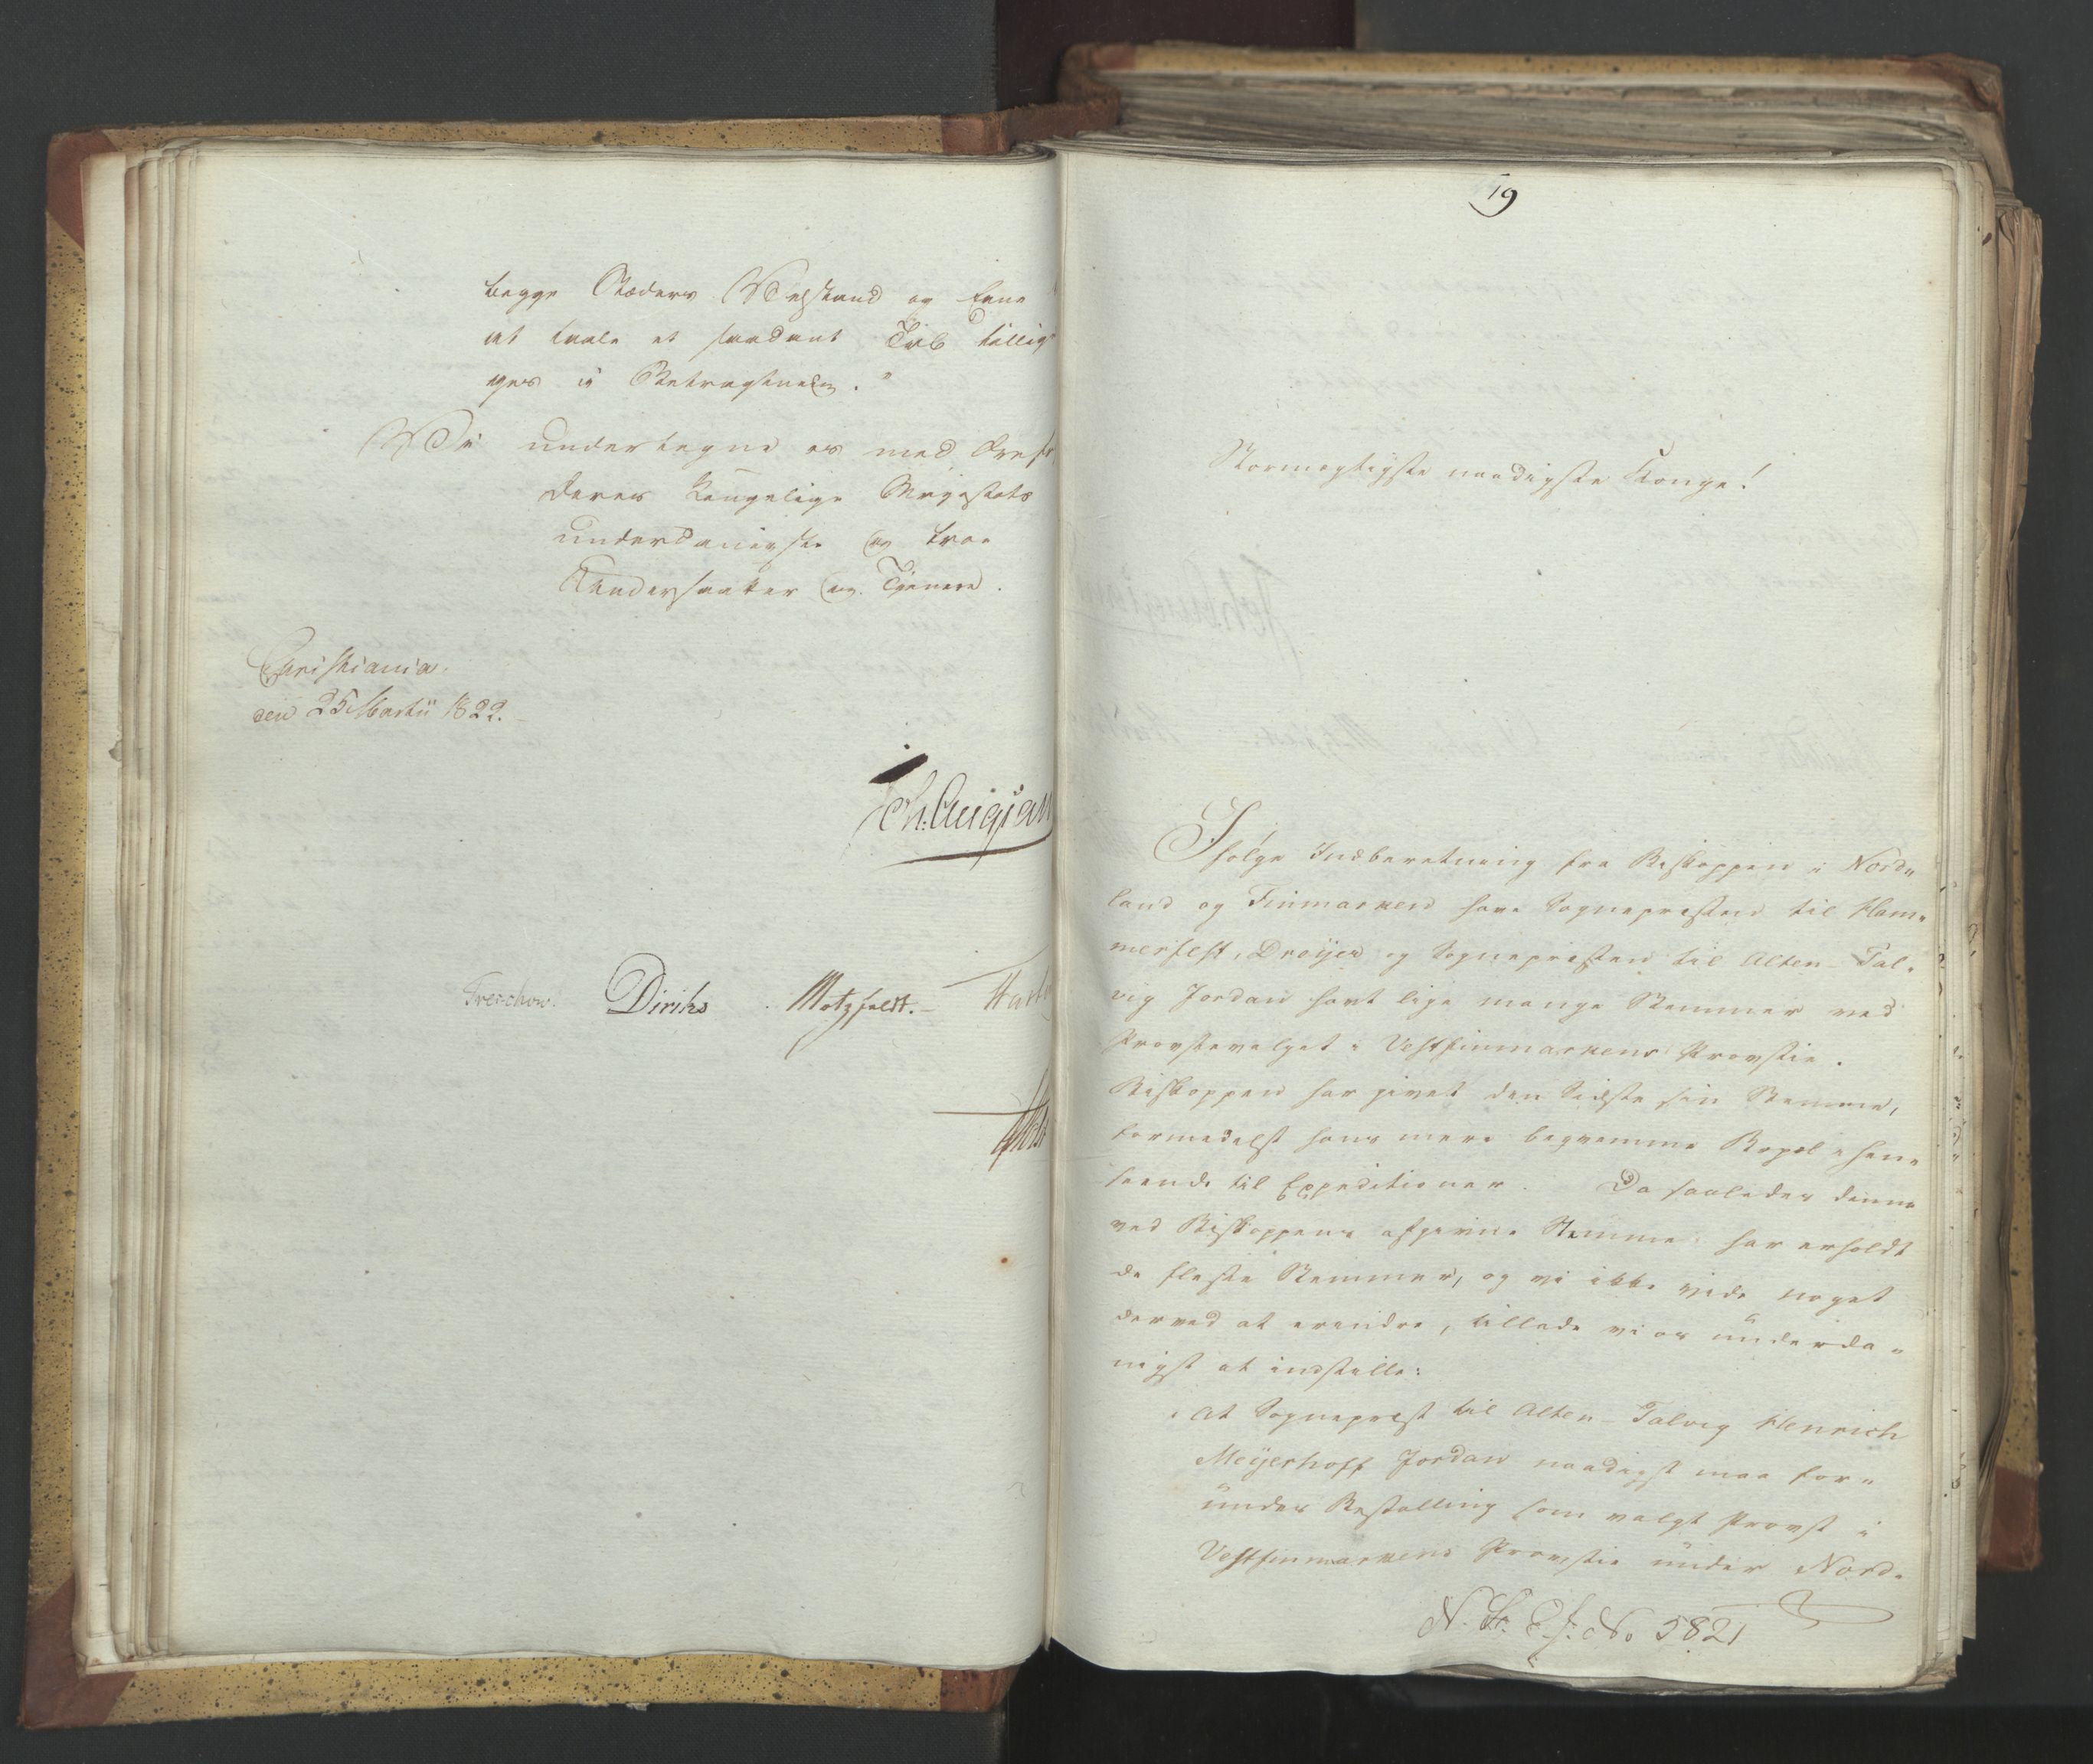 begge Stæders Velstand og Evne
at taale et saadant Tab tillig
ges i Betragtning."
Vi undertegne os med
Deres Kongelige Majestæts
underdanigste og troe
Undersaatter og Tjenere.
Christiania
den 25 Martii 1822.
Treschow. Diriks Motzfeldt.
19
Stormægtigste naadigste Konge!
Ifølge Indberetning fra Biskoppen i Nord-
land og Finmarken have Sognepræsten til Ham-
merfest, Dreyer og Sognepræsten til Alten-Tal-
vig Jordan havt lige mange Stemmer ved
Provstevalget i Vestfinmarkens Provstie.
Biskoppen har givet den Sidste sin Stemme,
formedelst hans mere beqvemme Bopæl i Hen-
seende til Expeditioner. Da saaledes denne
ved Biskoppens afgivne Stemme har erholdt
de fleste Stemmer, og vi ikke vide noget
derved at erindre, tillade vi os underda-
nigst at indstille:
"At Sognepræst til Alten-Talvig Henrich
Meyerhoff Jordan naadigst maa for-
undes Bestalling som valgt Provst i
Vestfinmarkens Provstie under Nord-
N. St. E. f. No 5821